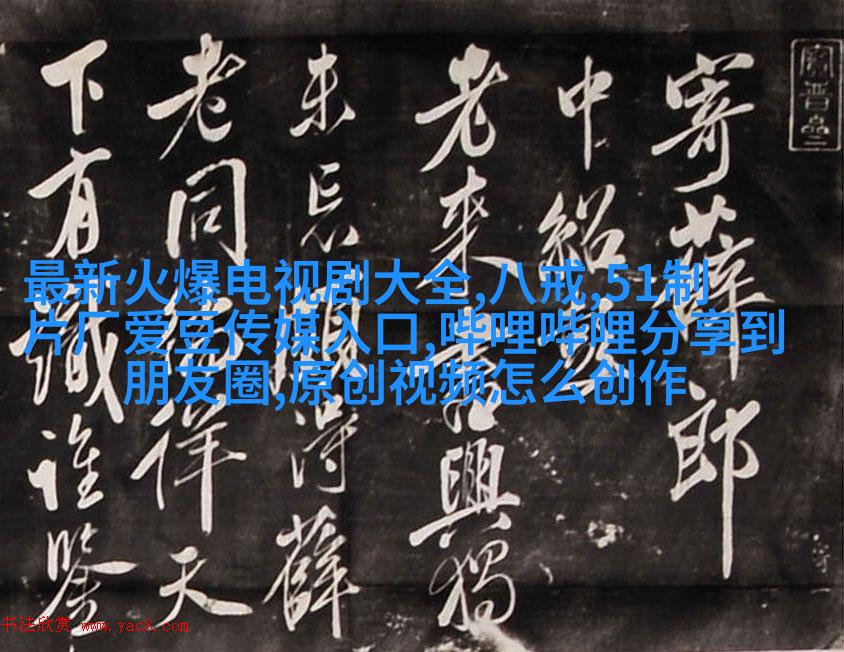 寄薛郎
中紹
老來興獨
未忘頗得薛
老同徉天
下有識誰鑒
最新火爆电视剧大全,八戒,51制
片厂爱豆传媒入口,哔哩哔哩分享到
朋友圈,原创视频怎么创作
书法欣赏 www.yac8.com